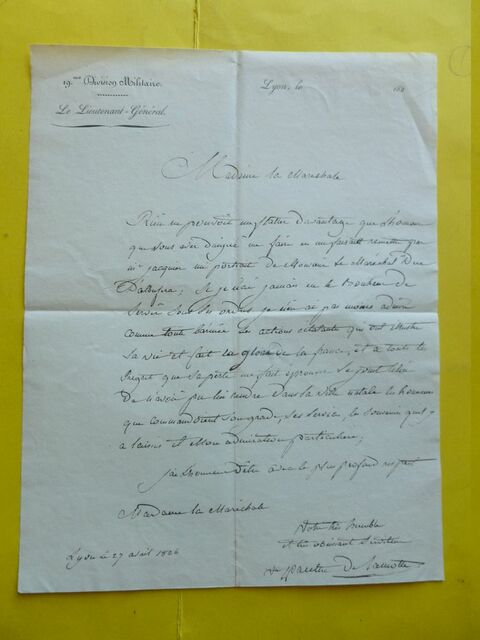 19.me Division Militaire.
Le Lieutenant-Général.
Lyon, le 182
Madame la Maréchale
Rien ne pouvoit me flatter davantage que l'honneur
que vous avez daigné me faire en me faisant remettre par
mr. jacquier un portrait de Monsieur le Maréchal Duc
D'albufera; Je n'ai jamais eu le bonheur de
servir sous ses ordres, je n'en ai pas moins admiré
comme toute l'armée les actions éclatantes qui ont illustré
sa vie et fait la gloire de la france, et a toute le
regret que sa perte me fait éprouver se joint celui
De n'avoir pu lui rendre dans sa ville natale les honneurs
que commandoient son grade, ses services, les souvenirs qu'il
a laissés et mon admiration particulière;
j'ai l'honneur d'être avec le plus profond respect
Madame la Maréchale
Votre très humble
et très obéissant serviteur
de Lamotte
Lyon le 27 avril 1826